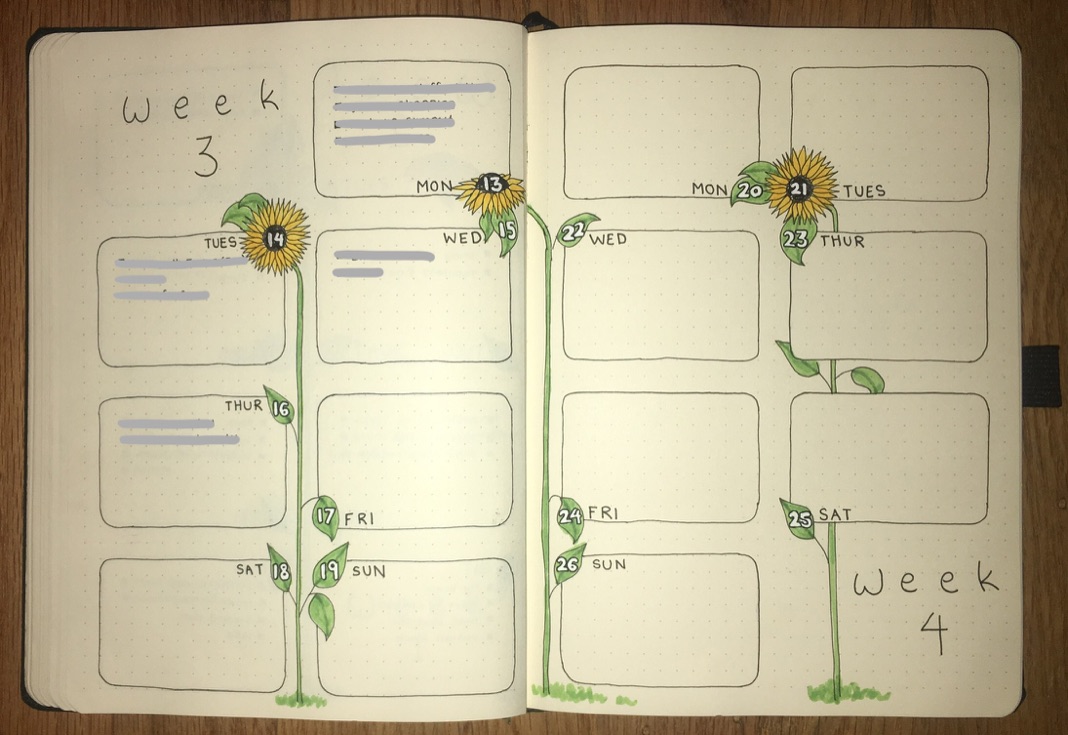 Week
3
MON 13
TUES 14
WED 15
THUR 16
17 FRI
SAT 18
19 SUN
MON 20
21 TUES
22 WED
23 THUR
24 FRI
25 SAT
26 SUN
Week
4